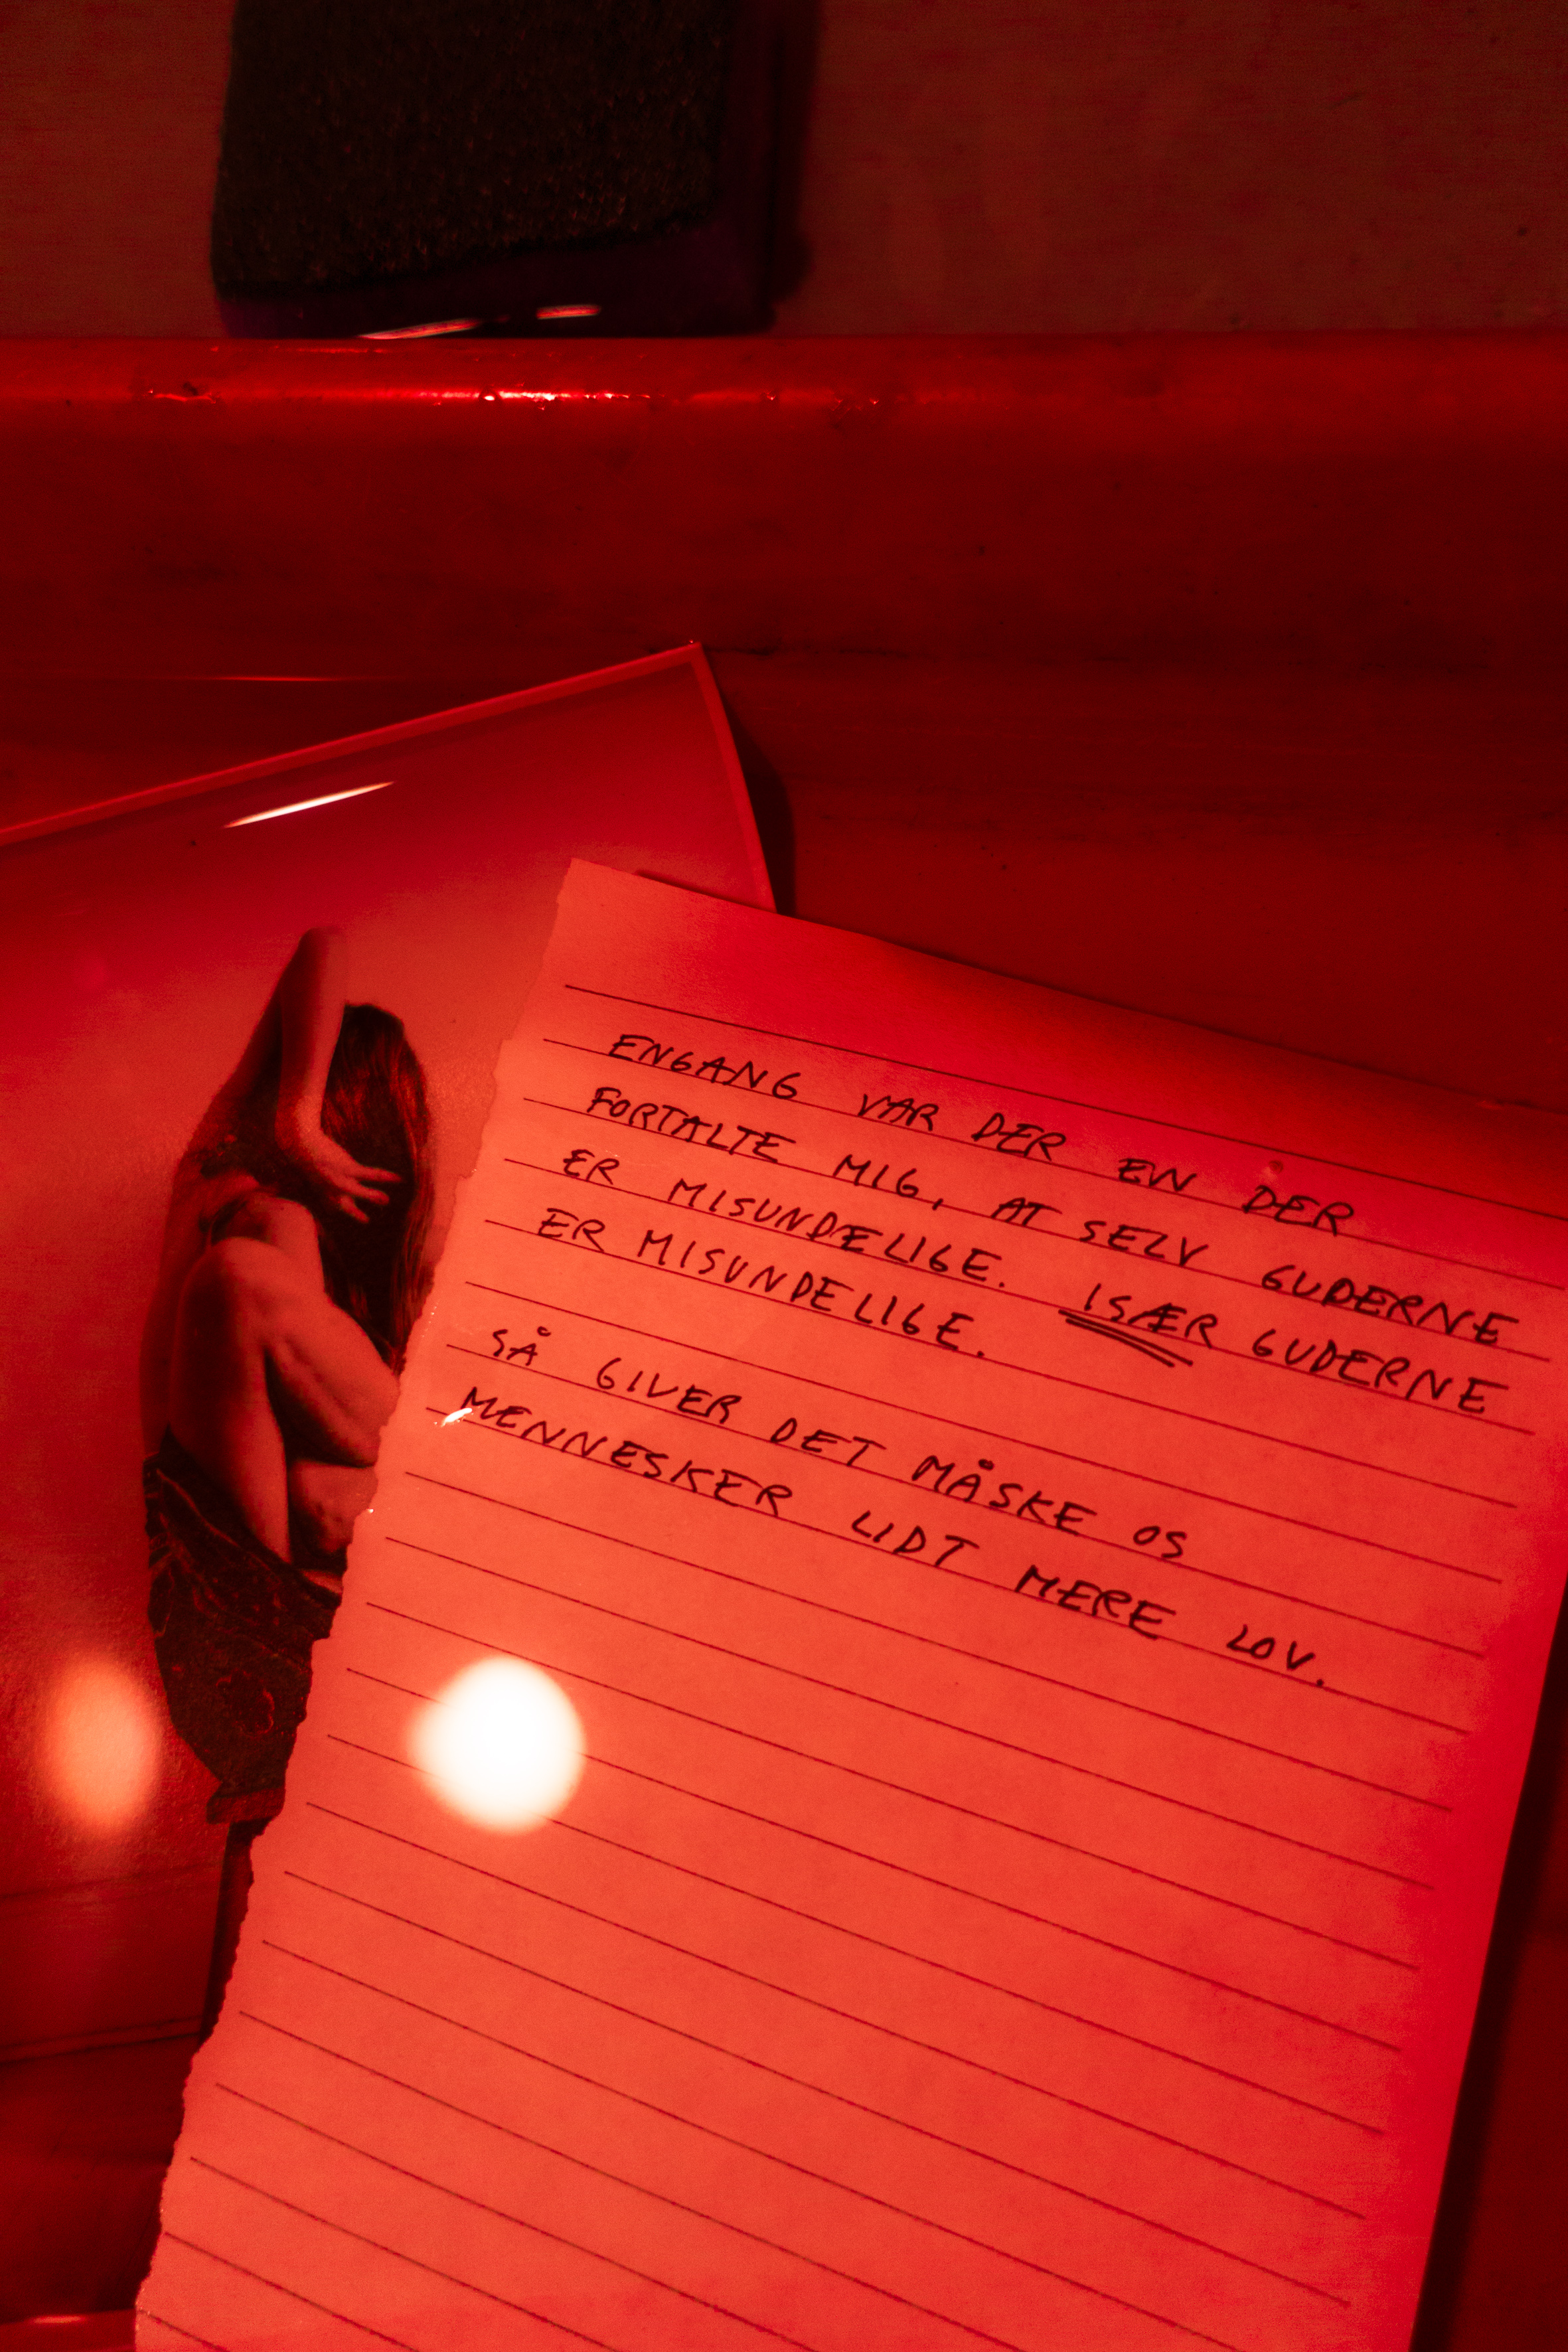 ENGANG VAR DER EN DER
FORTALTE MIG, AT SELV GUDERNE
ER MISUNDELIGE. ISÆR GUDERNE
ER MISUNDELIGE.
SÅ GIVER DET MÅSKE OS
MENNESKER LIDT MERE LOV.